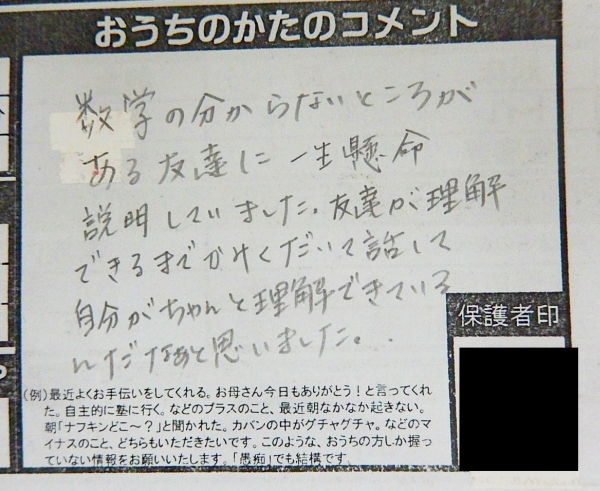 おうちのかたのコメント
数学の分からないところが
ある友達に一生懸命
説明していました。友達が理解
できるまでかみくだいて話して
自分がちゃんと理解できている
んだなあと思いました。
保護者印
(例)最近よくお手伝いをしてくれる。お母さん今日もありがとう!と言ってくれ
た。自主的に塾に行く。などのプラスのこと、最近朝なかなか起きない。
朝「ナフキンどこ~?」と聞かれた。カバンの中がグチャグチャ。などのマ
イナスのこと、どちらもいただきたいです。このような、おうちの方しか握っ
ていない情報をお願いいたします。「愚痴」でも結構です